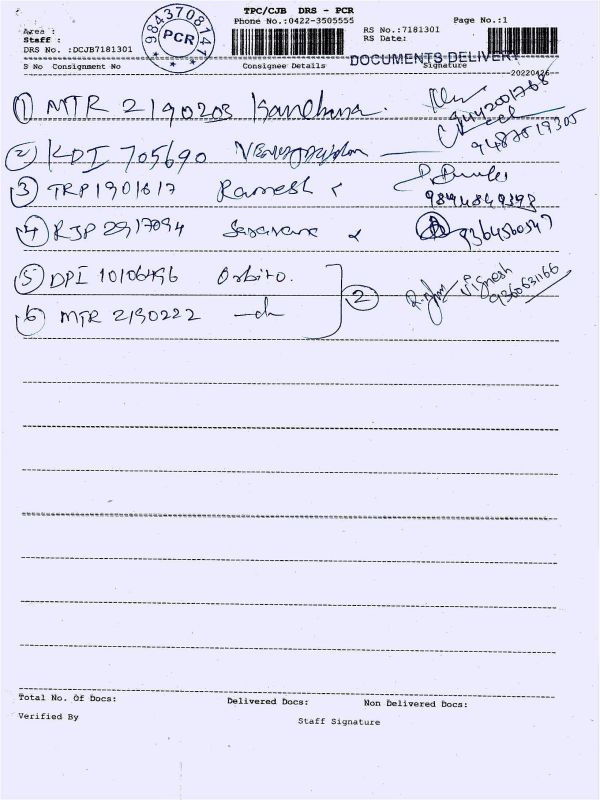 TPC/CJB DRS - PCR
Phone No.:0422-3505555
Page No.:1
Area :
Staff :
DRS No. :DCJB7181301
9843708141
PCR
RS No.:7181301
RS Date:
DOCUMENTS DELIVERY
S No Consignment No Consignee Details Signature
20220426
1 MTR 2190203 Kanchana.
9442001768
2 KDI 705690
9487519305
3 TRP 1901617 Ramesh
9894849398
4 RJP 2917094 Saravana
9364560547
5 DPI 10106496 Orbito.
6 MTR 2190222 -do-
2
Vignesh
9360631166
Total No. Of Docs: Delivered Docs: Non Delivered Docs:
Verified By Staff Signature